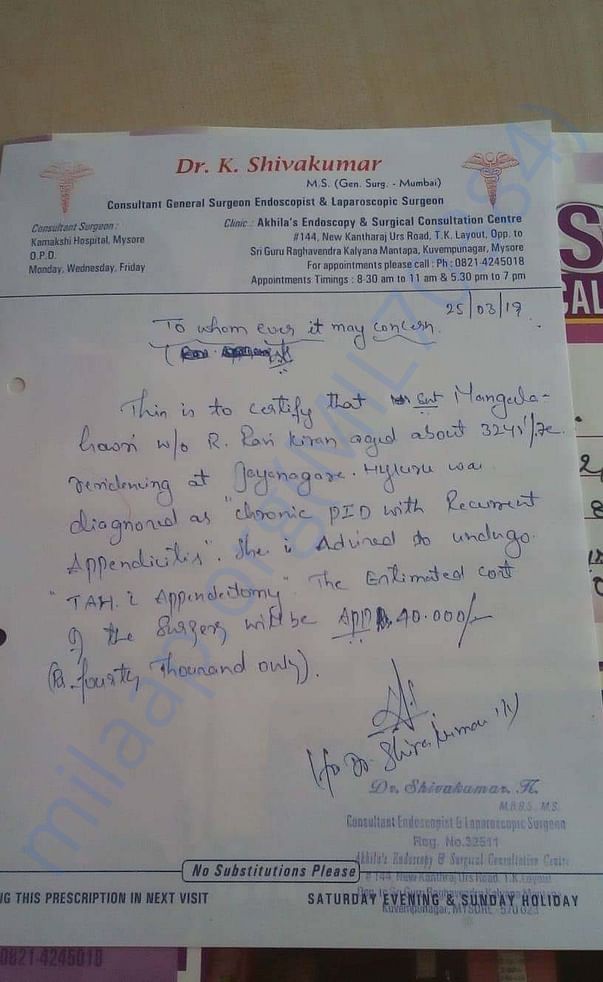 Dr. K. Shivakumar
M.S. (Gen. Surg. - Mumbai)
Consultant General Surgeon Endoscopist & Laparoscopic Surgeon
Consultant Surgeon :
Kamakshi Hospital, Mysore
O.P.D.
Monday, Wednesday, Friday
Clinic : Akhila's Endoscopy & Surgical Consultation Centre
#144, New Kantharaj Urs Road, T.K. Layout, Opp. to
Sri Guru Raghavendra Kalyana Mantapa, Kuvempunagar, Mysore
For appointments please call : Ph : 0821-4245018
Appointments Timings : 8-30 am to 11 am & 5.30 pm to 7 pm
25/03/19
To whom ever it may concern.
This is to certify that Smt Mangala-
Gowri w/o R. Ravi Kiran aged about
residencing at Jayanagare. Mysuru was
diagnosed as "chronic PID with Recurrent
Appendicitis". She is Advised to undergo
"TAH c̄ Appendectomy" The Estimated cost
of the Surgery will be App Rs. 40.000/-
(Rs. fourty Thousand only).
Dr. Shivakumar. K.
M.B.B.S., M.S.
Consultant Endoscopist & Laparoscopic Surgeon
Reg. No.32511
Akhila's Endoscopy & Surgical Consultation Centre
# 144, New Kantharaj Urs Road, T.K. Layout
Opp. to Sri Guru Raghavendra Kalyana Mantapa
Kuvempunagar, MYSORE - 570 023
No Substitutions Please
NG THIS PRESCRIPTION IN NEXT VISIT
SATURDAY EVENING & SUNDAY HOLIDAY
0821-4245018
S
CAL
milaap.org(MIL70984)